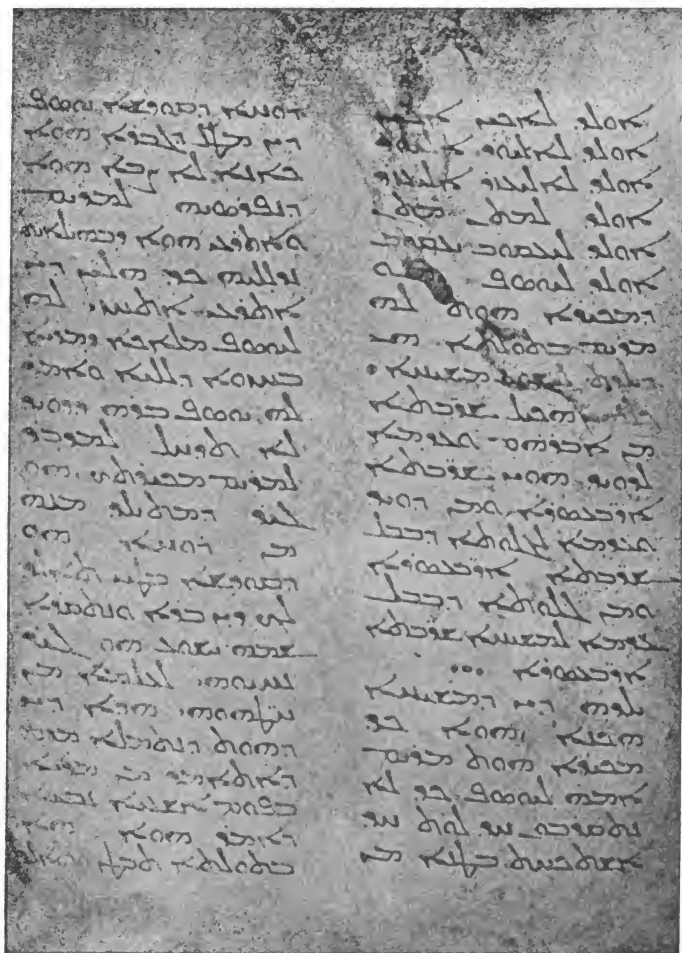 ܐܘܠܕ ܠܐܟܝܢ ܐܟܝܢ
ܐܘܠܕ ܠܐܠܝܘܕ ܐܠܝܘܕ
ܐܘܠܕ ܠܐܠܝܥܙܪ ܐܠܝܥܙܪ
ܐܘܠܕ ܠܡܬܢ ܡܬܢ
ܐܘܠܕ ܠܝܥܩܘܒ ܝܥܩܘܒ
ܐܘܠܕ ܠܝܘܣܦ ܗܘ
ܕܡܟܝܪܐ ܗܘܬ ܠܗ
ܡܪܝܡ ܒܬܘܠܬܐ ܗܝ
ܕܝܠܕܬ ܠܝܫܘܥ ܡܫܝܚܐ
ܗܟܝܠ ܫܪܒܬܐ
ܡܢ ܐܒܪܗܡ ܥܕܡܐ
ܠܕܘܝܕ ܗܘܝ ܫܪܒܬܐ
ܐܪܒܥܣܪܐ ܘܡܢ ܕܘܝܕ
ܥܕܡܐ ܠܓܠܘܬܐ ܕܒܒܠ
ܫܪܒܬܐ ܐܪܒܥܣܪܐ
ܘܡܢ ܓܠܘܬܐ ܕܒܒܠ
ܥܕܡܐ ܠܡܫܝܚܐ ܫܪܒܬܐ
ܐܪܒܥܣܪܐ
ܝܠܕܗ ܕܝܢ ܕܡܫܝܚܐ
ܗܟܢܐ ܗܘܐ ܟܕ
ܡܟܝܪܐ ܗܘܬ ܡܪܝܡ
ܐܡܗ ܠܝܘܣܦ ܟܕ ܠܐ
ܚܕ ܠܘܬ ܚܕ
ܐܫܬܟܚܬ ܒܛܢܐ ܡܢ
ܪܘܚܐ ܕܩܘܕܫܐ ܝܘܣܦ
ܕܝܢ ܡܛܠ ܕܓܒܪܐ ܗܘܐ
ܟܐܢܐ ܠܐ ܨܒܐ ܗܘܐ
ܕܢܦܪܣܝܗ ܠܡܪܝܡ
ܘܐܬܪܥܝ ܗܘܐ ܕܒܫܠܝܐ
ܟܕ ܗܠܝܢ ܕܝܢ
ܐܬܪܥܝ ܐܬܚܙܝ ܠܗ
ܠܝܘܣܦ ܡܠܐܟܐ ܕܡܪܝܐ
ܒܚܙܘܐ ܕܠܠܝܐ ܘܐܡܪ
ܠܗ ܝܘܣܦ ܒܪܗ ܕܕܘܝܕ
ܠܐ ܬܕܚܠ ܠܡܕܒܪ
ܠܡܪܝܡ ܡܟܝܪܬܟ ܗܘ
ܓܝܪ ܕܡܬܝܠܕ ܡܢܗ
ܡܢ ܪܘܚܐ ܗܘ
ܕܩܘܕܫܐ ܒܛܝܢ ܬܐܠܕ
ܠܟ ܕܝܢ ܒܪܐ ܘܢܬܩܪܐ
ܫܡܗ ܝܫܘܥ ܗܘ ܓܝܪ
ܢܚܝܘܗܝ ܠܥܠܡܐ ܡܢ
ܚܛܗܘܗܝ ܗܕܐ ܕܝܢ
ܕܗܘܬ ܕܢܬܡܠܐ ܡܕܡ
ܕܐܬܐܡܪ ܡܢ ܡܪܝܐ
ܒܦܘܡ ܐܫܥܝܐ ܢܒܝܐ
ܕܐܡܪ ܗܘܐ ܗܐ
ܒܬܘܠܬܐ ܬܒܛܢ ܘܬܐܠܕ